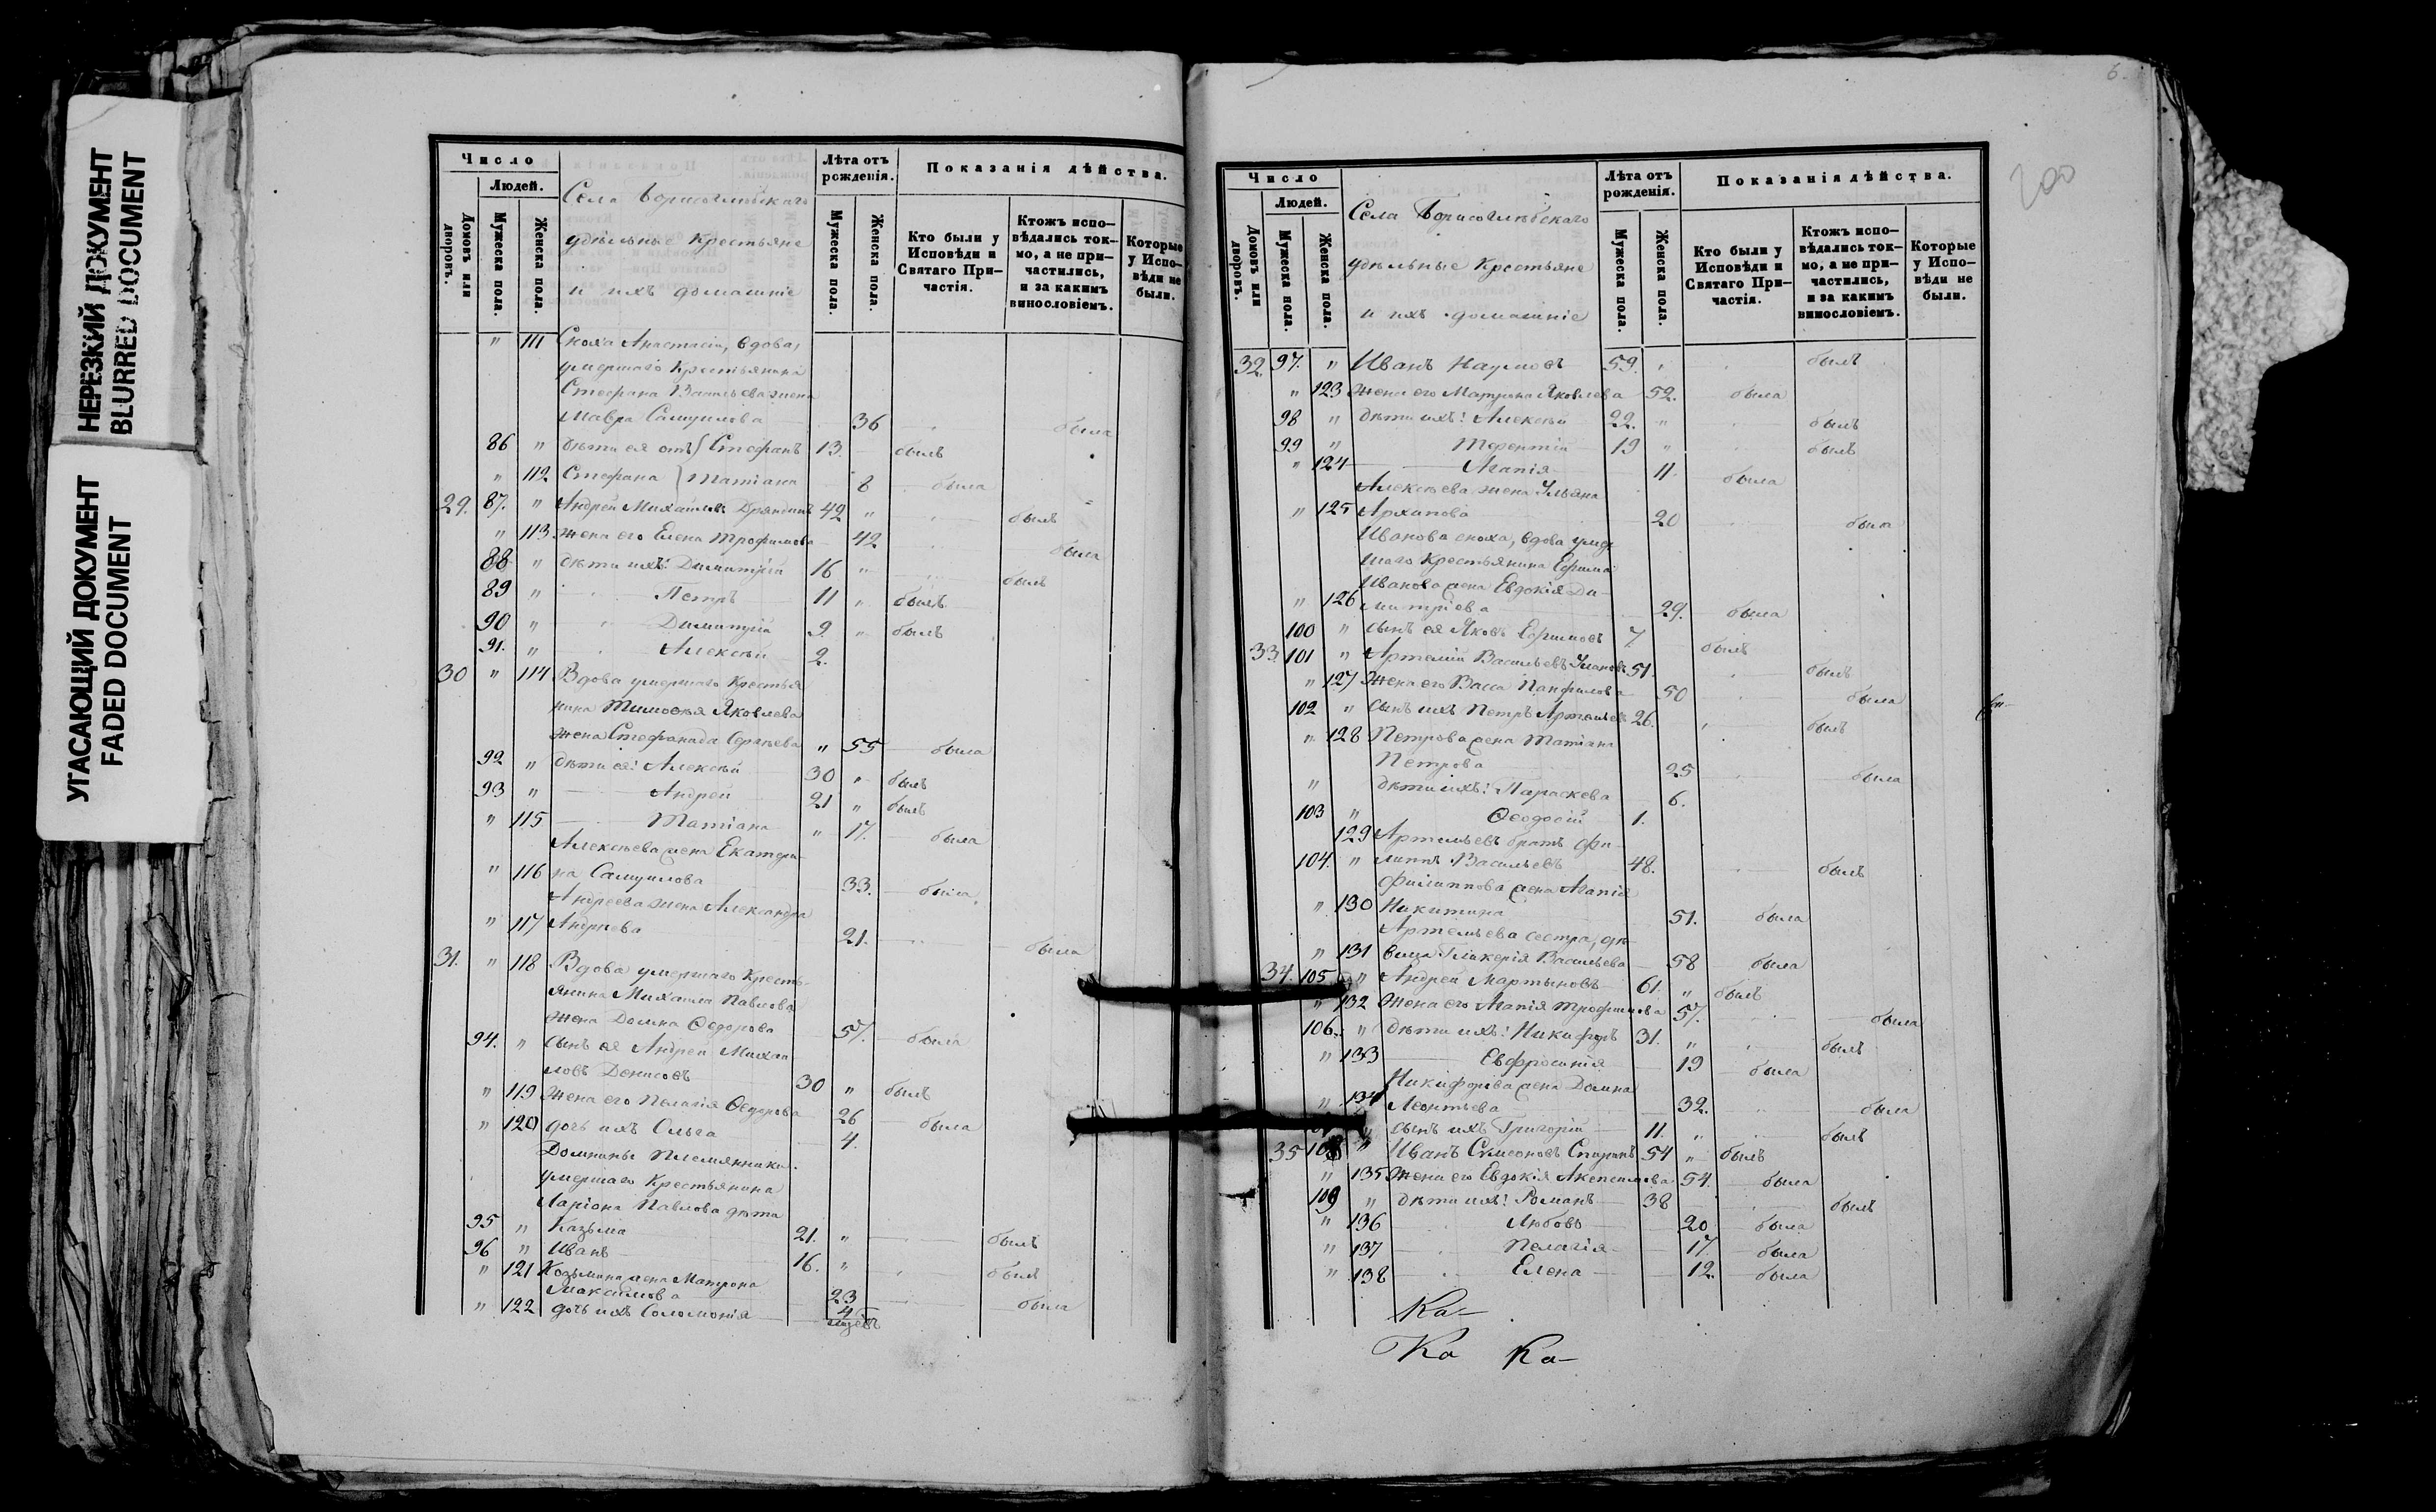 НЕРЕЗКИЙ ДОКУМЕНТ
BLURRED DOCUMENT
УГАСАЮЩИЙ ДОКУМЕНТ
FADED DOCUMENT
Число
Людей.
Домовъ или дворовъ.
Мужеска пола.
Женска пола.
Села Борисоглѣбскаго
удѣльные Крестьяне
и ихъ домашніе
Лѣта отъ рожденія.
Мужеска пола.
Женска пола.
Показанія дѣйства.
Кто были у Исповѣди и Святаго Причастія.
Ктожъ исповѣдались токмо, а не причастились, и за какимъ винословіемъ.
Которые у Исповѣди не были.
" 111 Сноха Анастасіи, вдова,
умершаго Крестьянина
Стефана Васильева жена
Мавра Самуилова 36 была
86 " дѣти ея отъ Стефанъ 13. былъ
" 112 Стефана Татіана 8 была
29. 87. " Андрей Михайловъ 42 " былъ
" 113. жена его Елена Трофимова 42 была
88 " дѣти ихъ: Димитрій 16 " былъ
89 " Петръ 11 " былъ
90 " Димитрій 9. " былъ
91. " Алексѣй 2.
30 " 114 Вдова умершаго Крестья
нина Тимоѳея Яковлева
жена Стефанида Сергѣева " 55 была
92 " дѣти ея: Алексѣй 30 " былъ
93 " Андрей 21 " былъ
" 115 Татіана " 17. была
Алексѣева жена Екатери-
" 116 на Самуилова 33. была
Андреева жена Александра
" 117 Андреева 21. была
31. " 118 Вдова умершаго Кресть-
янина Михаила Павлова
жена Домна Ѳедорова 57. была
94. " сынъ ея Андрей Михай
ловъ Денисовъ 30 " былъ
" 119 жена его Пелагія Ѳедорова 26 была
" 120 дочь ихъ Ольга 4.
Домнины племянники
умершаго Крестьянина
Ларіона Павлова дѣти
95 " Казьма 21. " былъ
96 " Иванъ 16. " былъ
" 121 Козьмина жена Матрона
Максимова 23 была
" 122 дочь ихъ Соломонія
6.
200
Число
Людей.
Домовъ или дворовъ.
Мужеска пола.
Женска пола.
Села Борисоглѣбскаго
удѣльные Крестьяне
и ихъ домашніе
Лѣта отъ рожденія.
Мужеска пола.
Женска пола.
Показанія дѣйства.
Кто были у Исповѣди и Святаго Причастія.
Ктожъ исповѣдались токмо, а не причастились, и за какимъ винословіемъ.
Которые у Исповѣди не были.
32. 97. " Иванъ Наумовъ 59. " былъ
" 123 Жена его Матрона Яковлева 52. была
98 " дѣти ихъ: Алексѣй 22. " былъ
99 " Терентій 19 " былъ
" 124 Агапія 11. была
Алексѣева жена Ульяна
" 125 Архипова 20 была
Иванова сноха, вдова умер
шаго Крестьянина Ефима
Иванова жена Евдокія Ди-
" 126 митріева 29. была
100 " сынъ ея Яковъ Ефимовъ 7. былъ
33. 101 " Артемій Васильевъ 51. былъ
" 127 Жена его Васса Панфилова 50 была
102 " Сынъ ихъ Петръ Артемьевъ 26. былъ
" 128 Петрова жена Татіана
Петрова 25 была
" дѣти ихъ: Параскева 6.
103 " Ѳеодосій 1.
129 Артемьевъ братъ Фи-
104. " липпъ Васильевъ 48. былъ
Филиппова жена Агапія
" 130 Никитина 51. была
Артемьева сестра, дѣ-
" 131 вица Гликерія Васильева 58 была
34. 105 " Андрей Мартыновъ 61. " былъ
" 132 Жена его Агапія Трофимова 57. была
106. " дѣти ихъ: Никифоръ 31. " былъ
" 133 Евфросинія 19 была
Никифорова жена Домна
" 134 Леонтьева 32. была
сынъ ихъ Григорій 11. " былъ
35 108 " Иванъ Сумеоновъ 54 " былъ
" 135 Жена его Евдокія 54. была
109 " дѣти ихъ: Романъ 38 былъ
" 136 Любовь 20 была
" 137 Пелагія 17. была
" 138 Елена 12. была
Ка-
Ка Ка-